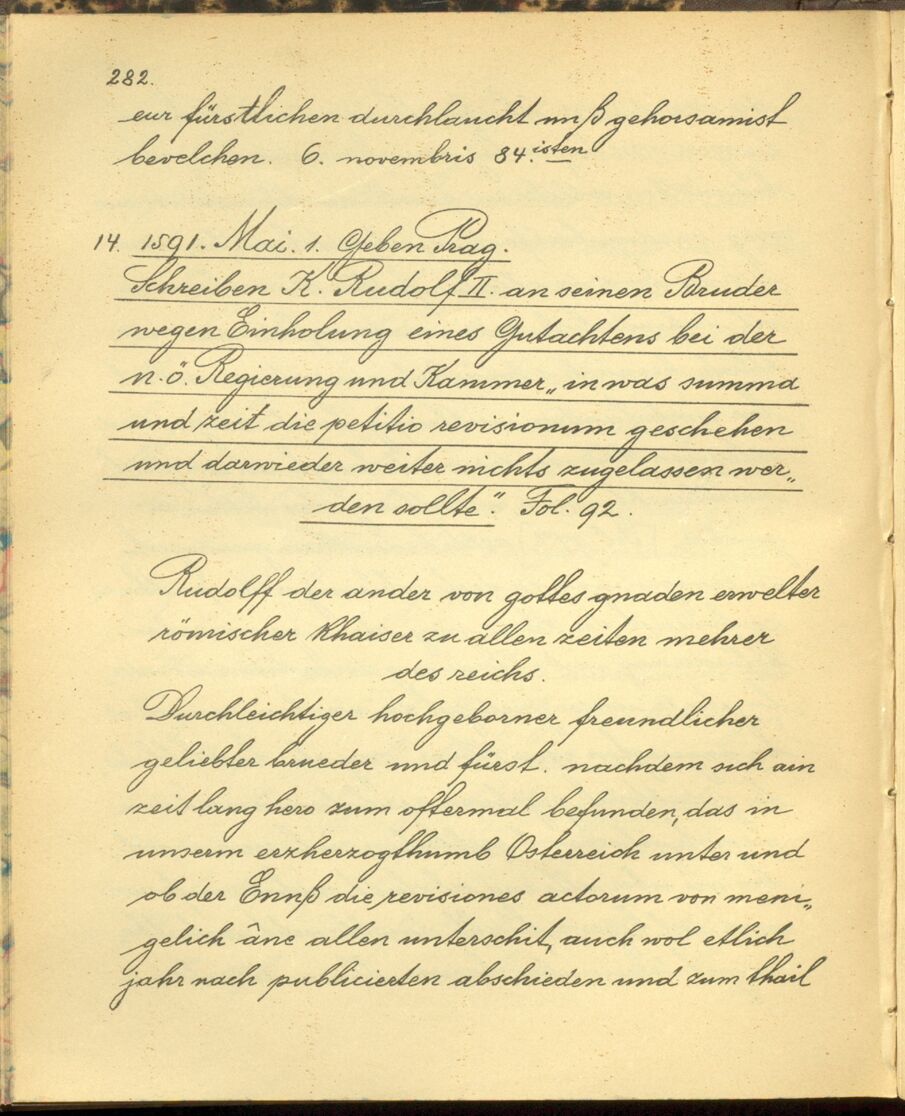 282.
eur fürstlichen durchlaucht unß gehorsamist
bevelchen. 6. novembris 84.isten
14. 1591. Mai. 1. Geben Prag.
Schreiben K. Rudolf II. an seinen Bruder
wegen Einholung eines Gutachtens bei der
n.ö. Regierung und Kammer „in was summa
und zeit die petitio revisionum geschehen
und darwieder weiter nichts zugelassen wer„
den sollte“. Fol. 92.
Rudolff der ander von gottes gnaden erwelter
römischer khaiser zu allen zeiten mehrer
des reichs.
Durchleichtiger hochgeborner freundlicher
geliebter brueder und fürst. nachdem sich ain
zeit lang hero zum oftermal befunden, das in
unserm erzherzogthumb Österreich unter und
ob der Ennß die revisiones actorum von meni„
gelich âne allen unterschit, auch wol etlich
jahr nach publicierten abschieden und zum thail